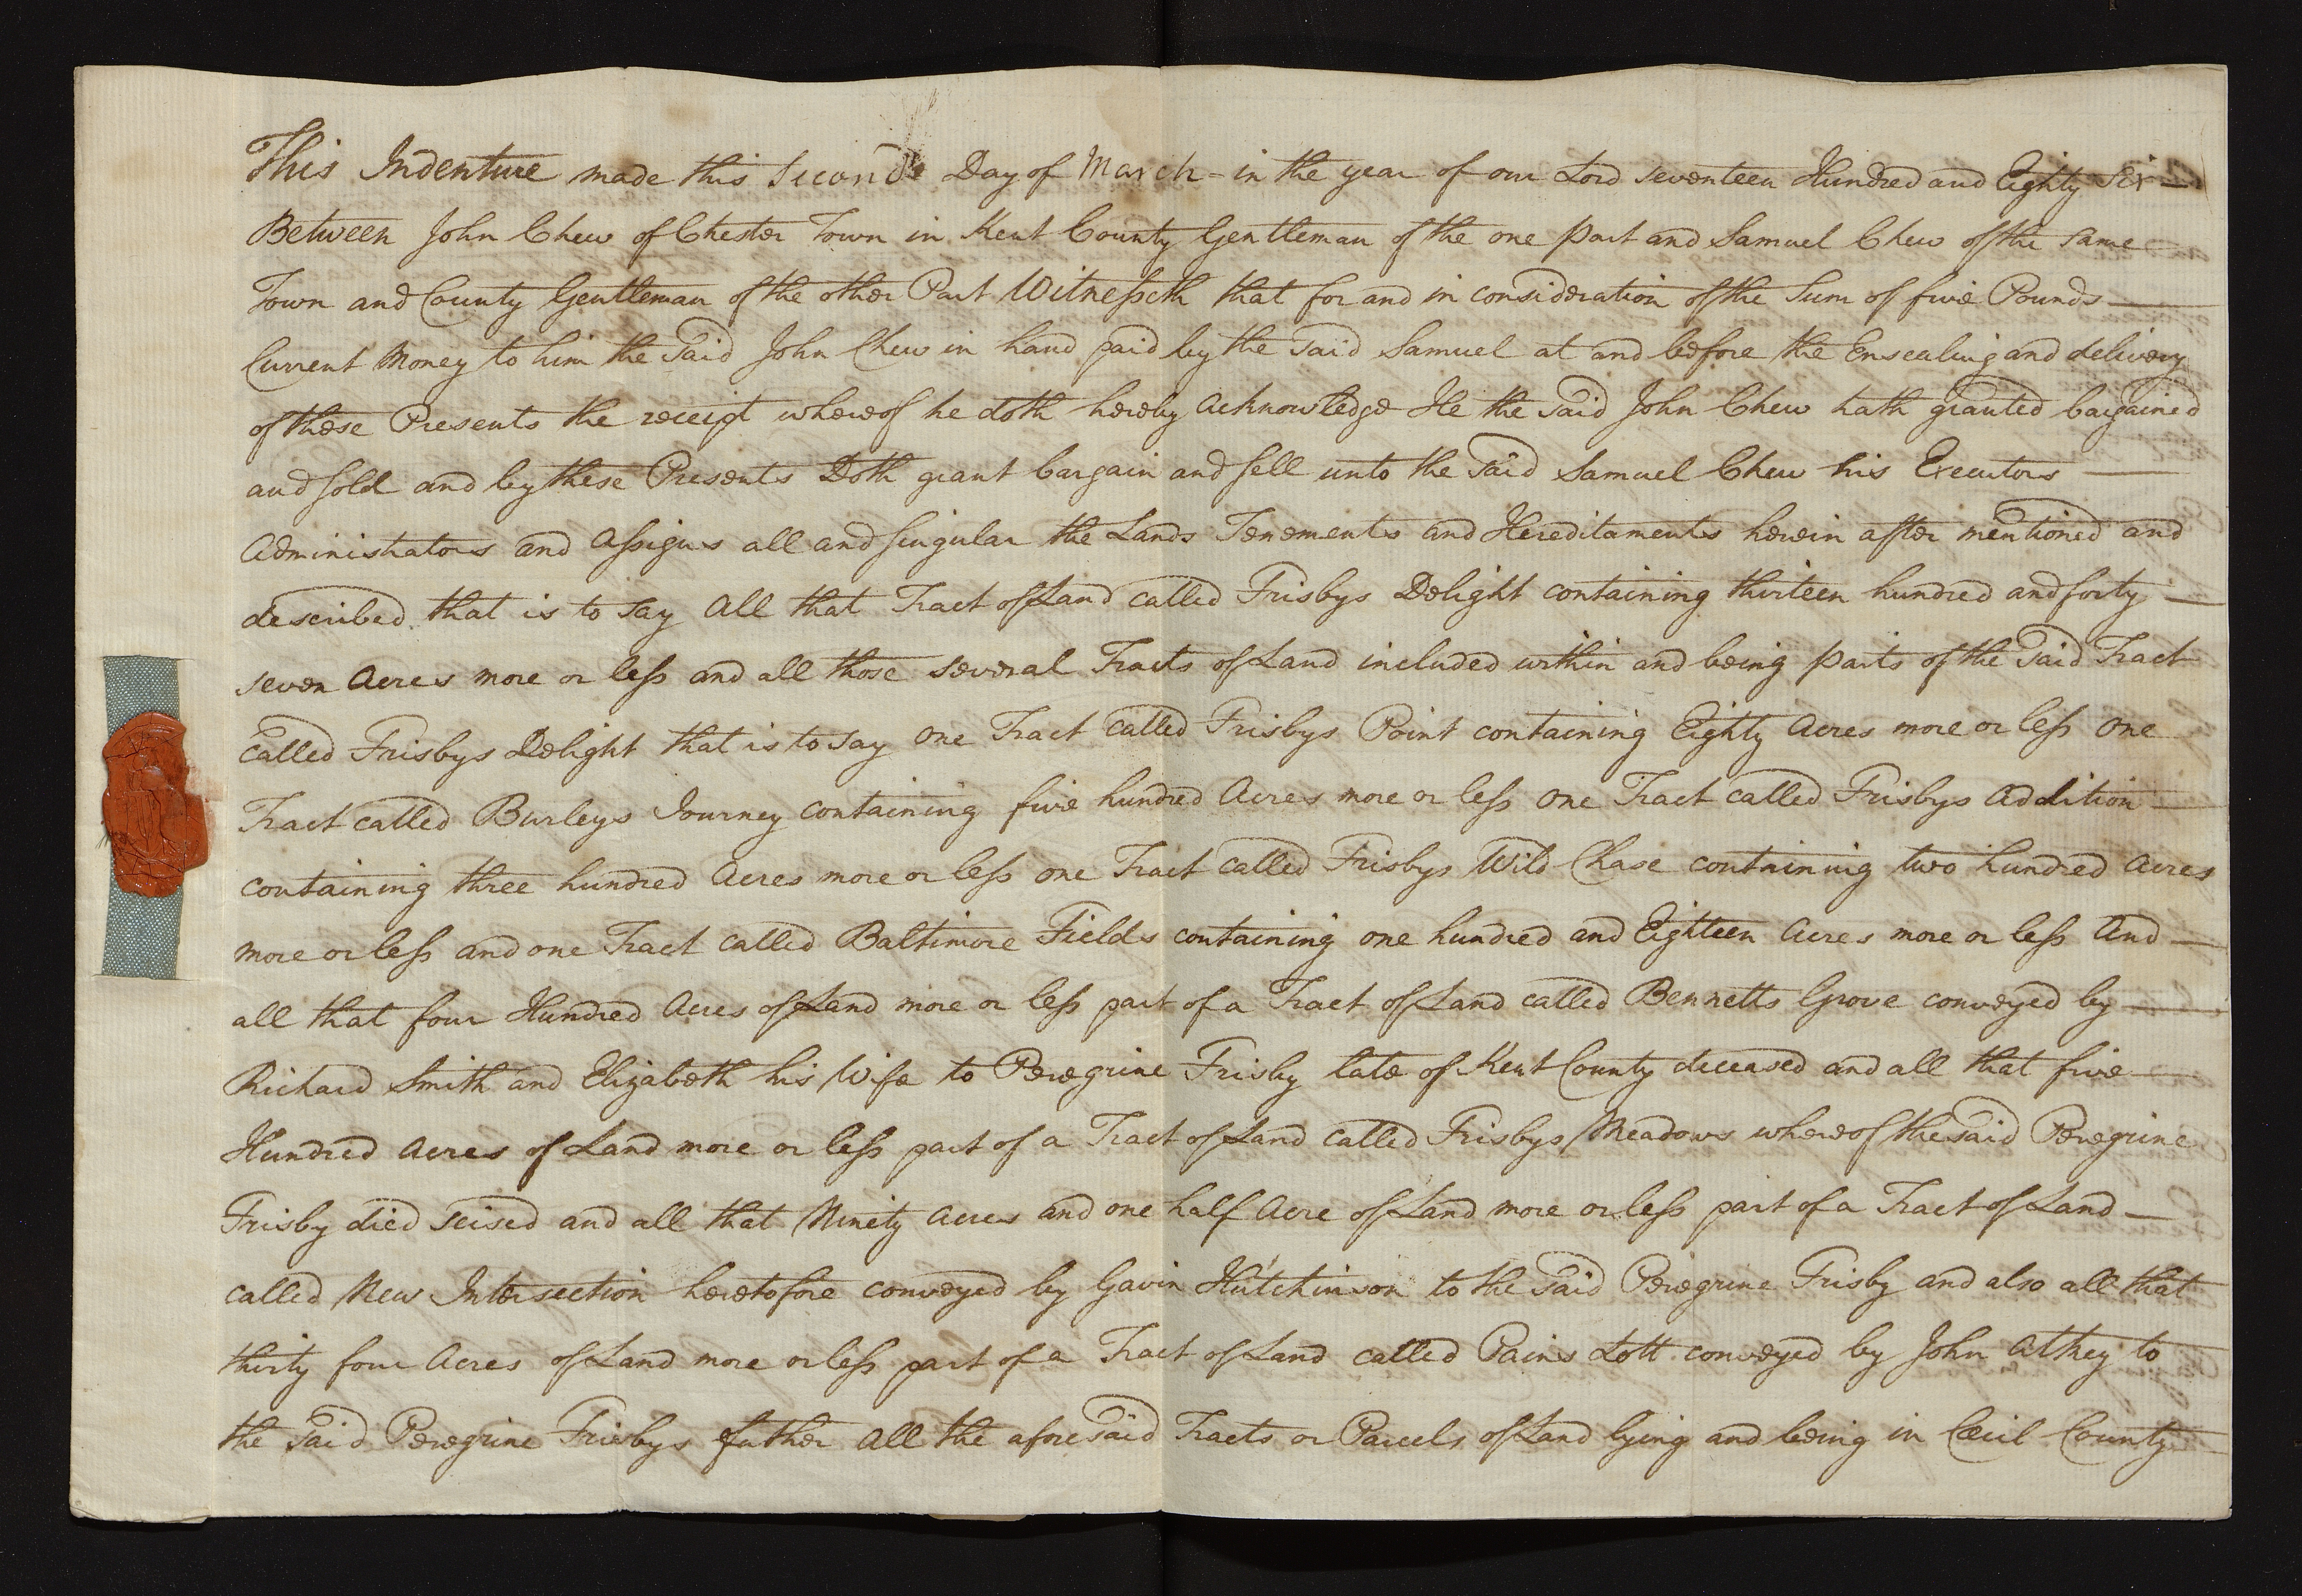 This Indenture made this Second Day of March - in the year of our Lord seventeen Hundred and Eighty Six —
Between John Chew of Chester Town in Kent County Gentleman of the one part and Samuel Chew of the same
Town and County Gentleman of the other Part Witnesseth that for and in consideration of the Sum of five Pounds —
Current Money to him the said John Chew in hand paid by the said Samuel at and before the Ensealing and delivery
of these Presents the receipt whereof he doth hereby acknowledge He the said John Chew hath granted bargained
and sold and by these Presents Doth grant bargain and sell unto the said Samuel Chew his Executors —
Administrators and Assigns all and singular the Lands Tenements and Hereditaments herein after mentioned and
described that is to say All that Tract of Land called Frisbys Delight containing thirteen hundred and forty —
seven Acres more or less and all those several Tracts of Land included within and being parts of the said Tract
called Frisbys Delight that is to say One Tract called Frisbys Point containing Eighty Acres more or less One
Tract called Burleys Journey containing five hundred Acres more or less One Tract called Frisbys Addition —
containing three hundred Acres more or less one Tract called Frisbys Wild Chase containing two hundred Acres
more or less and one Tract called Baltimore Fields containing one hundred and Eighteen Acres more or less And —
all that four Hundred Acres of Land more or less part of a Tract of Land called Bennetts Grove conveyed by —
Richard Smith and Elizabeth his Wife to Peregrine Frisby late of Kent County deceased and all that five —
Hundred Acres of Land more or less part of a Tract of Land called Frisbys Meadows whereof the said Peregrine
Frisby died seised and all that Ninety Acres and one half Acre of Land more or less part of a Tract of Land —
called New Intersection heretofore conveyed by Gavin Hutchinson to the said Peregrine Frisby and also all that
thirty four Acres of Land more or less part of a Tract of Land called Pains Lott conveyed by John Athey to
the said Peregrine Frisbys father All the aforesaid Tracts or Parcels of Land lying and being in Cecil County